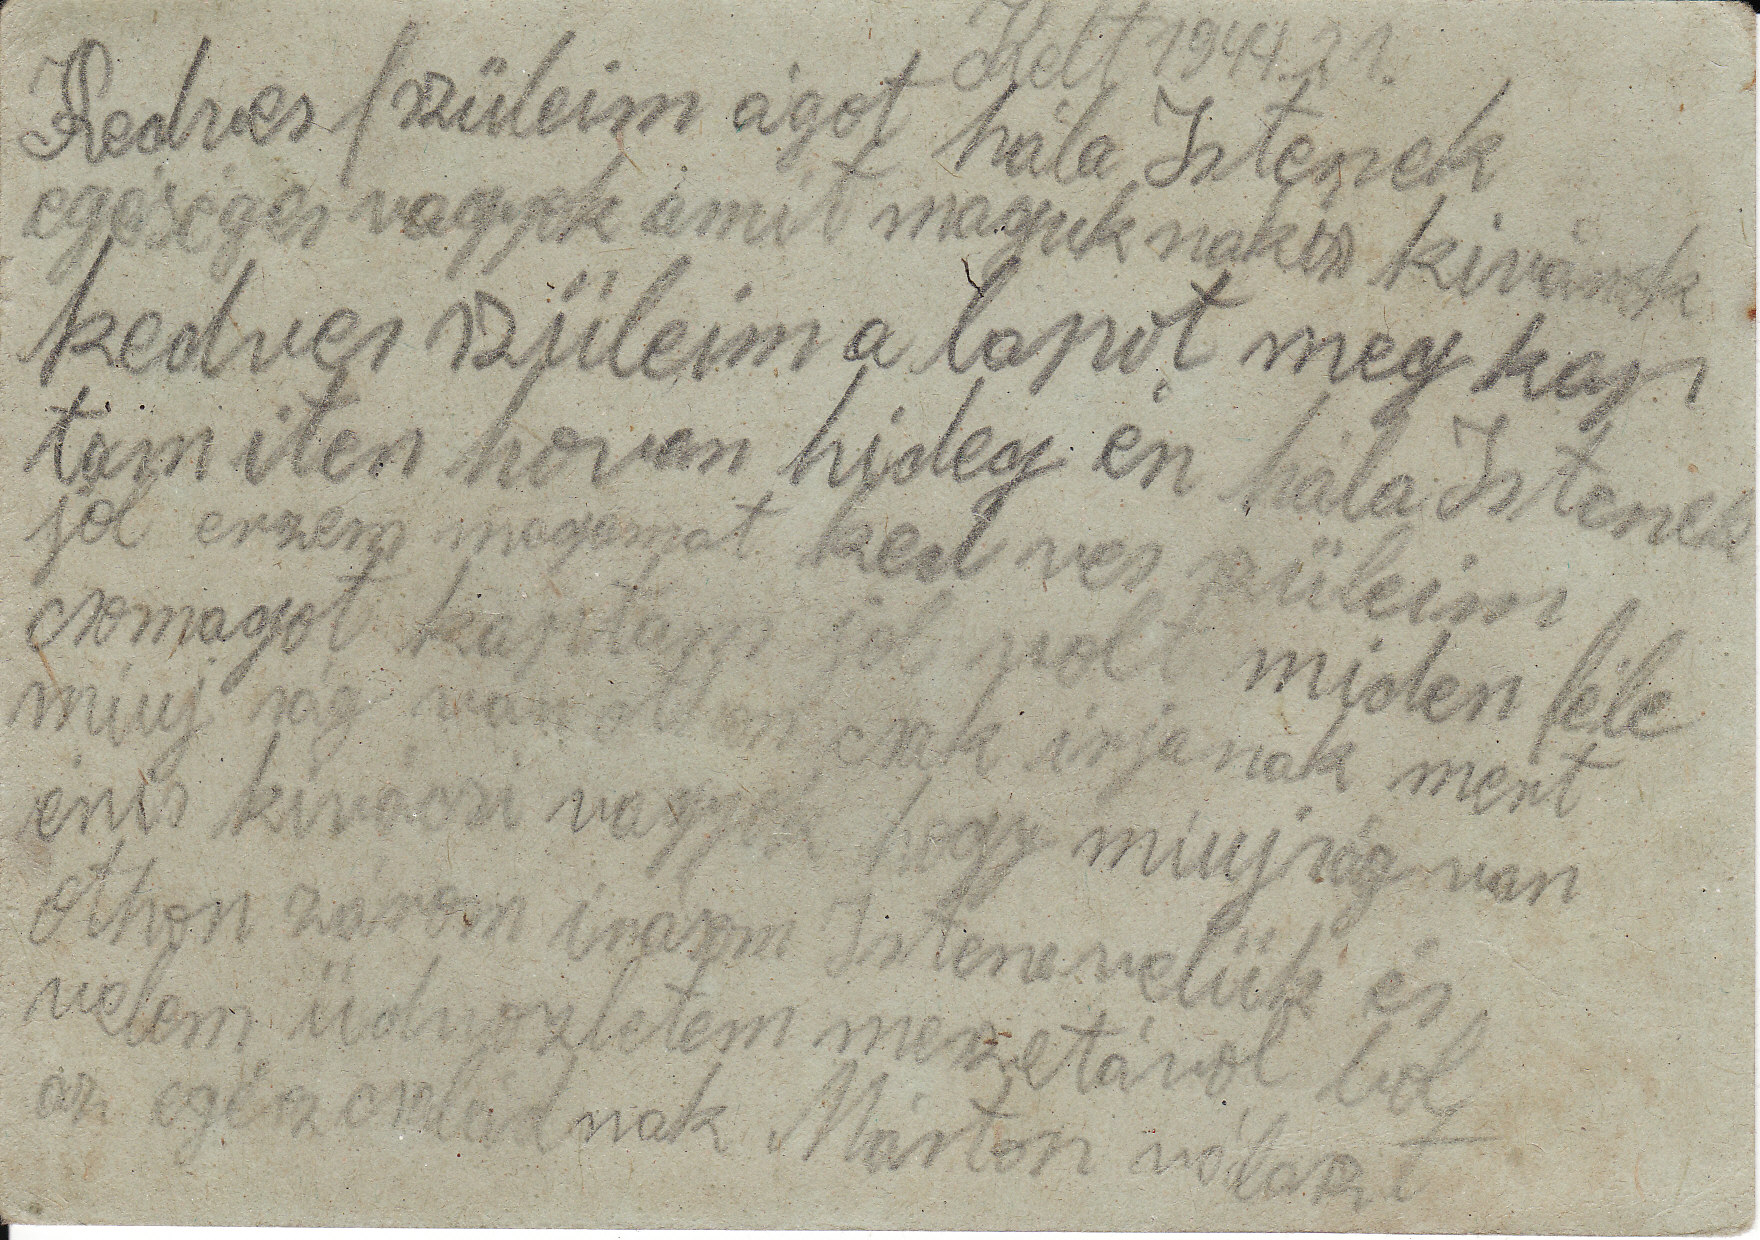 Kelt 1944. 21.
Kedves szüleim ágot hála Istenek
egéséges vagyok amit maguknakis kivánok
kedves szüleim a lapot meg kap
tam iten hovan hideg én hála Istenek
jól erzem magamat kedves szüleim
csomagot kaptam jól volt miden féle
miuj ság van othon csak irjanak mert
énis kiváncsi vagyok hogy miujság van
othon zárom irasom Isten velük és
velem üdvozletem meszetávol bol
az egész családnak Márton választ